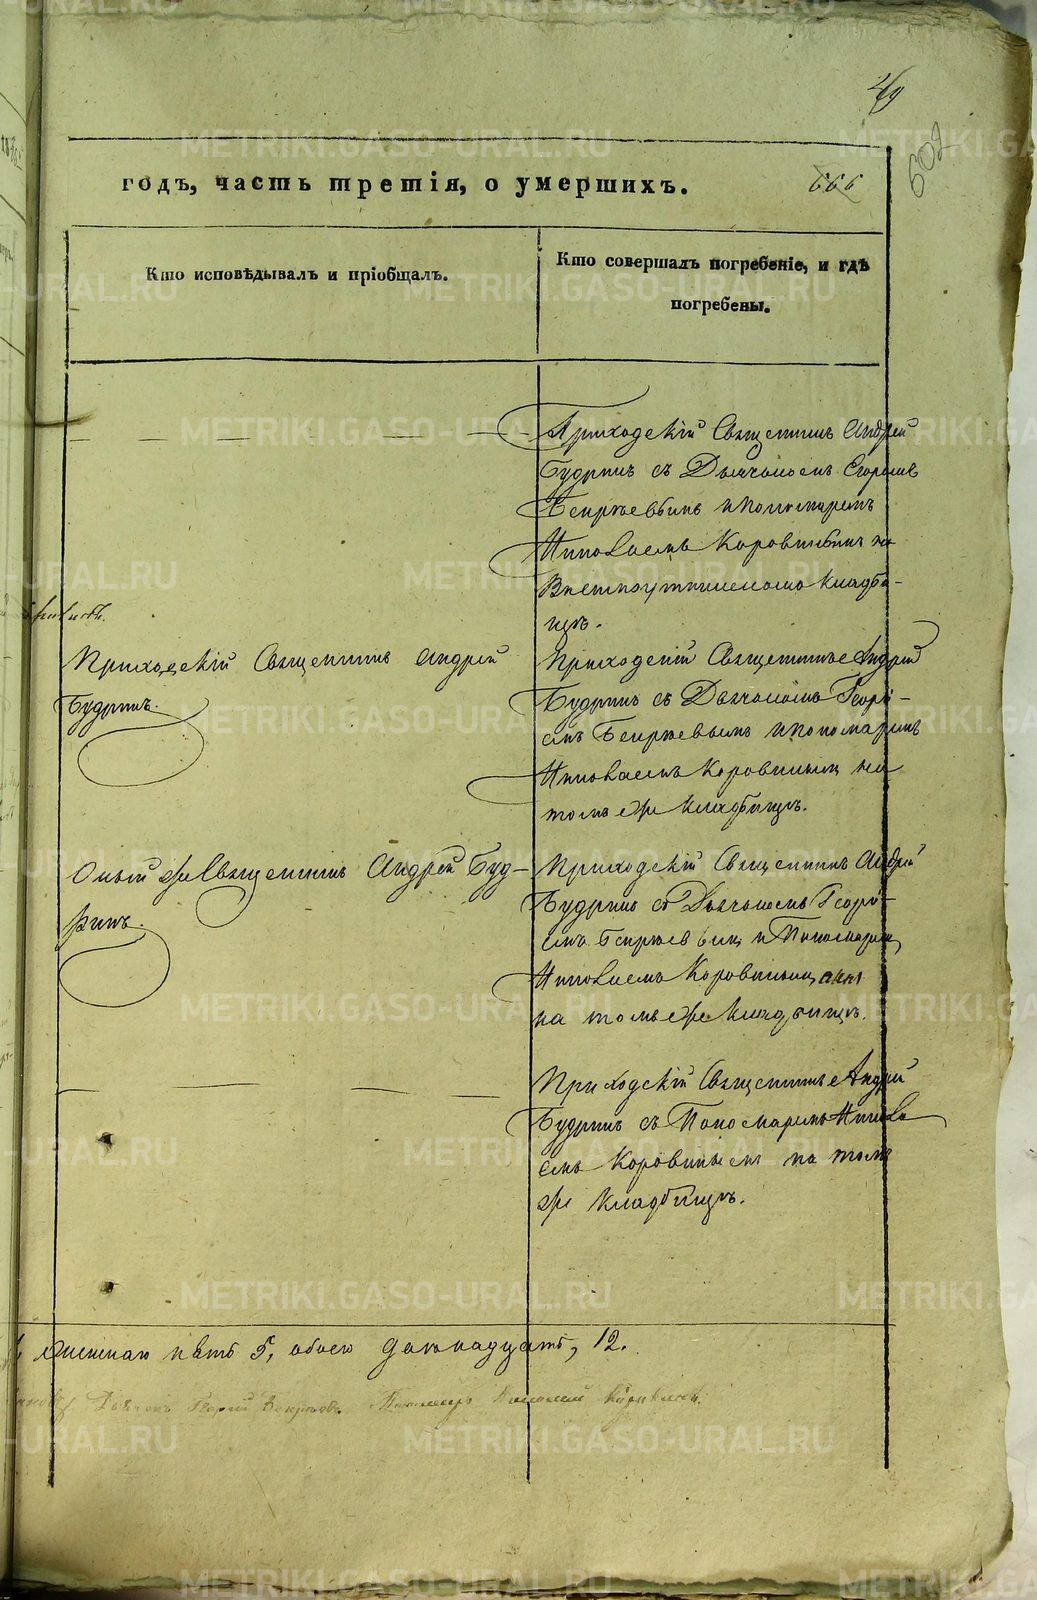 годъ, часть третія, о умершихъ.
666
602
Кто исповѣдывалъ и пріобщалъ.
Кто совершалъ погребеніе, и гдѣ
погребены.
Приходскій Священникъ Андрей
Будринъ съ Дьячкомъ
и пономаремъ
Николаемъ Коровинымъ на
кладби-
щѣ.
Приходскій Священникъ Андрей
Будринъ.
Приходскій Священникъ Андрей
Будринъ съ Дьячкомъ Георгі-
емъ и пономаремъ
Николаемъ Коровинымъ на
томъ же кладбищѣ.
Оный же Священникъ Андрей Буд-
ринъ.
Приходскій Священникъ Андрей
Будринъ съ Дьячкомъ Георгі-
емъ и Пономаремъ
Николаемъ Коровинымъ
на томъ же кладбищѣ.
Приходскій Священникъ Андрей
Будринъ съ Пономаремъ Никола
емъ Коровинымъ на томъ
же кладбищѣ.
женска пять 5, обоего двѣнадцать, 12.
Дьячекъ Георгій Пономарь Николай
METRIKI.GASO-URAL.RU